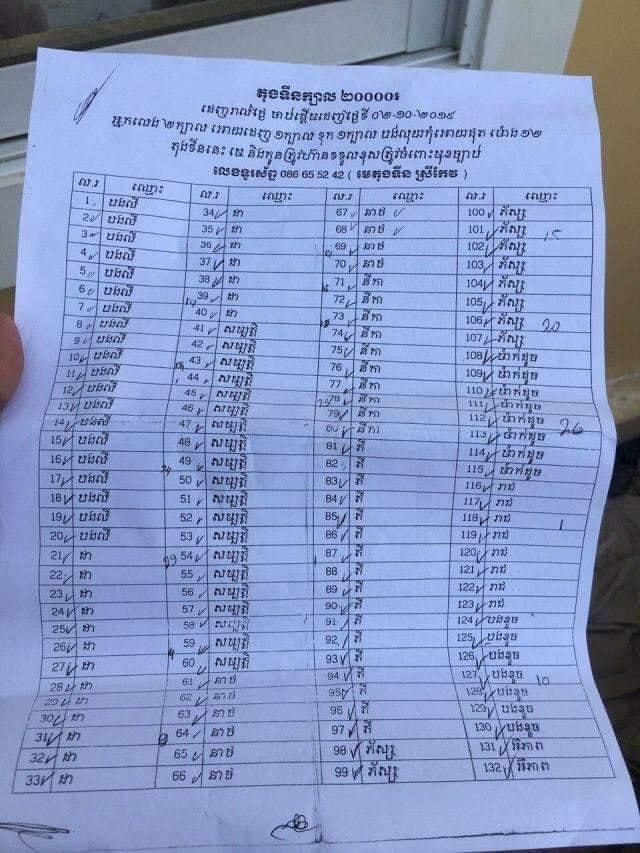 តុងទីនក្បាល ២០០០០៛
ដេញរាល់ថ្ងៃ ចាប់ផ្ដើមដេញថ្ងៃទី ០២-១០-២០១៥
អ្នកលេង ២ក្បាល អោយដេញ ១ក្បាល ទុក ១ក្បាល បង់លុយកុំអោយផុត ម៉ោង ១២
តុងទីននេះ មេ និងកូនត្រូវហ៊ានទទួលខុសត្រូវចំពោះមុខច្បាប់
លេខទូរស័ព្ទ 086 65 52 42 ( មេតុងទីន ស្រីកែវ )
ល.រ ឈ្មោះ ល.រ ឈ្មោះ ល.រ ឈ្មោះ ល.រ ឈ្មោះ
1 បងលី 34 ដា 67 នាថ់ 100 ភ័ស្ស
2 បងលី 35 ដា 68 នាថ់ 101 ភ័ស្ស 15
3 បងលី 36 ដា 69 នាថ់ 102 ភ័ស្ស
4 បងលី 37 ដា 70 នាថ់ 103 ភ័ស្ស
5 បងលី 38 ដា 71 នីកា 104 ភ័ស្ស
6 បងលី 39 ដា 72 នីកា 105 ភ័ស្ស
7 បងលី 40 ដា 73 នីកា 106 ភ័ស្ស 20
8 បងលី 41 សម្បត្តិ 74 នីកា 107 ភ័ស្ស
9 បងលី 42 សម្បត្តិ 75 នីកា 108 ម៉ាក់ដូច
10 បងលី 43 សម្បត្តិ 76 នីកា 109 ម៉ាក់ដូច
11 បងលី 44 សម្បត្តិ 77 នីកា 110 ម៉ាក់ដូច
12 បងលី 45 សម្បត្តិ 78 នីកា 111 ម៉ាក់ដូច
13 បងលី 46 សម្បត្តិ 79 នីកា 112 ម៉ាក់ដូច 26
14 បងលី 47 សម្បត្តិ 80 នីកា 113 ម៉ាក់ដូច
15 បងលី 48 សម្បត្តិ 81 ភី 114 ម៉ាក់ដូច
16 បងលី 49 សម្បត្តិ 82 ភី 115 ម៉ាក់ដូច
17 បងលី 50 សម្បត្តិ 83 ភី 116 រាជ់
18 បងលី 51 សម្បត្តិ 84 ភី 117 រាជ់
19 បងលី 52 សម្បត្តិ 85 ភី 118 រាជ់ 1
20 បងលី 53 សម្បត្តិ 86 ភី 119 រាជ់
21 ដា 54 សម្បត្តិ 87 ភី 120 រាជ់
22 ដា 55 សម្បត្តិ 88 ភី 121 រាជ់
23 ដា 56 សម្បត្តិ 89 ភី 122 រាជ់
24 ដា 57 សម្បត្តិ 90 ភី 123 រាជ់
25 ដា 58 សម្បត្តិ 91 ភី 124 បងខូច
26 ដា 59 សម្បត្តិ 92 ភី 125 បងខូច
27 ដា 60 សម្បត្តិ 93 ភី 126 បងខូច
28 ដា 61 នាថ់ 94 ភី 127 បងខូច 10
29 ដា 62 នាថ់ 95 ភី 128 បងខូច
30 ដា 63 នាថ់ 96 ភី 129 បងខូច
31 ដា 64 នាថ់ 97 ភី 130 បងខូច
32 ដា 65 នាថ់ 98 ភ័ស្ស 131 អ៊ីភាព
33 ដា 66 នាថ់ 99 ភ័ស្ស 132 អ៊ីភាព